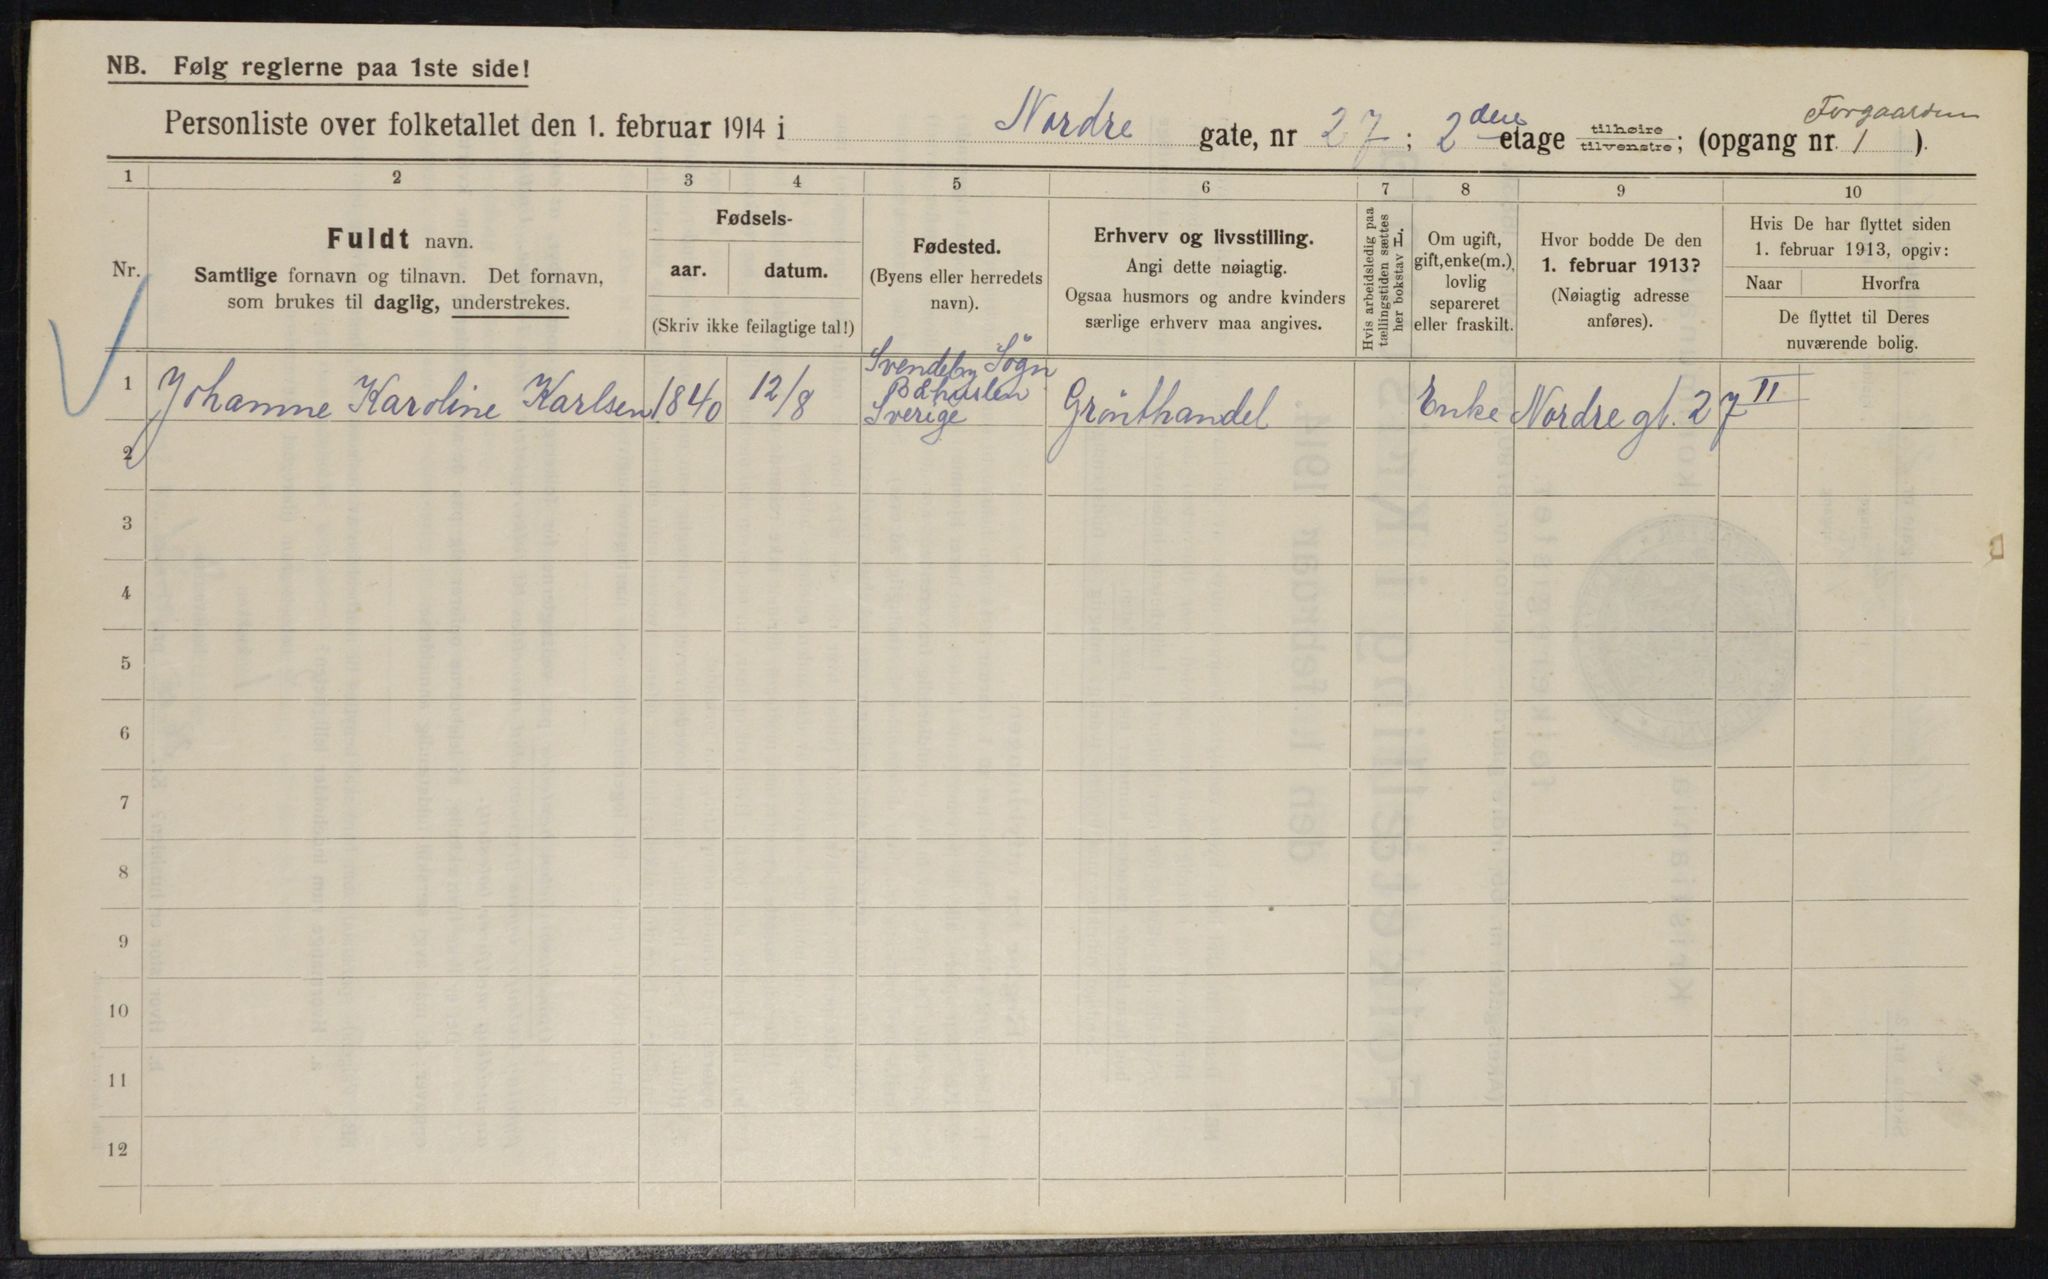 NB. Følg reglerne paa 1ste side!
Forgaarden
Personliste over folketallet den 1. februar 1914 i Nordre gate, nr 27; 2den etage tilhøire/tilvenstre; (opgang nr. 1).
1 2 3 4 5 6 7 8 9 10
Nr.
Fuldt navn.
Samtlige fornavn og tilnavn. Det fornavn,
som brukes til daglig, understrekes.
Fødsels-
aar. datum.
(Skriv ikke feilagtige tal!)
Fødested.
(Byens eller herredets
navn).
Erhverv og livsstilling.
Angi dette nøiagtig.
Ogsaa husmors og andre kvinders
særlige erhverv maa angives.
Hvis arbeidsledig paa
tællingstiden sættes
her bokstav H.
Om ugift,
gift, enke(m.),
lovlig
separeret
eller fraskilt.
Hvor bodde De den
1. februar 1913?
(Nøiagtig adresse
anføres).
Hvis De har flyttet siden
1. februar 1913, opgiv:
Naar Hvorfra
De flyttet til Deres
nuværende bolig.
Sogn
1 Johanne Karoline Karlsen 1840 12/8 Sverige Grønthandel Enke Nordre gt. 27 II
2
3
4
5
6
7
8
9
10
11
12